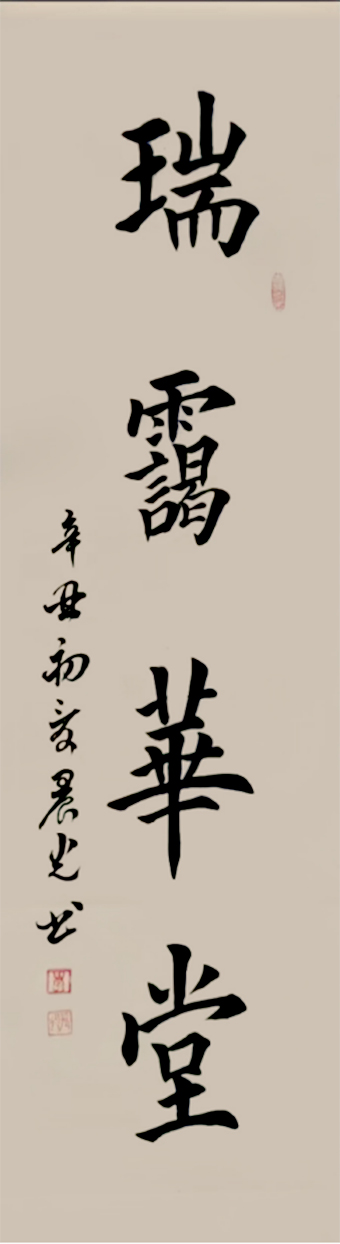 瑞靄華堂
辛丑初夏晨光书